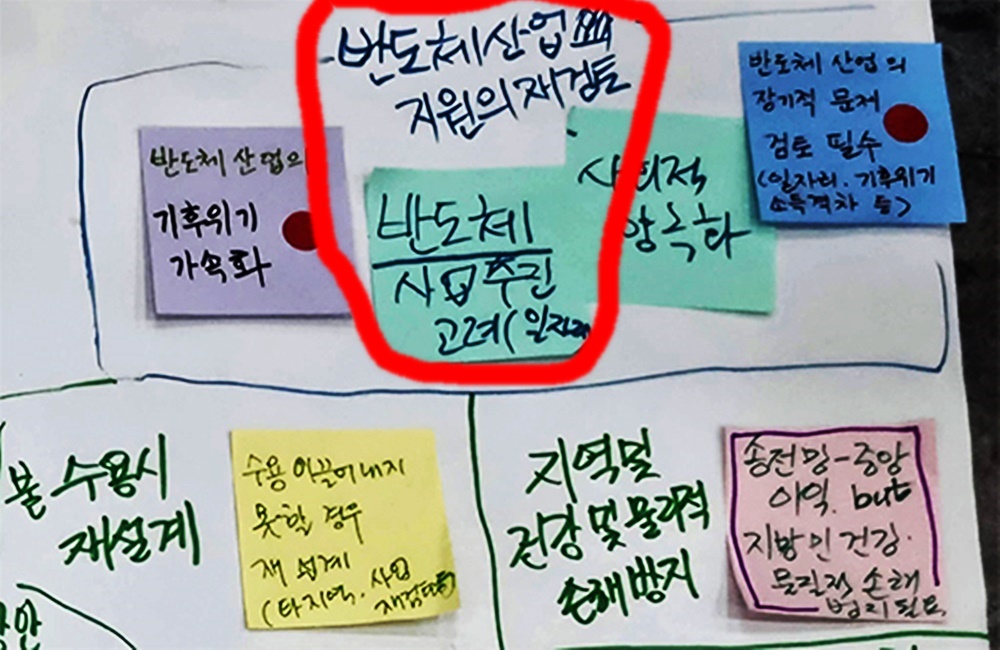 반도체 산업
지원의 재검토
반도체 산업의
기후위기
가속화
반도체
사업추진
고려(일자리
사회적
양극화
반도체 산업의
장기적 문제
검토 필수
(일자리. 기후위기
소득격차 등)
불 수용시
재설계
수용 이끌어내지
못할 경우
재 설계
(타지역. 사업
재검토등)
지역민
건강 및 물리적
손해 방지
송전망-중앙
이익. but
지방민 건강.
물질적 손해
방지필요
방안